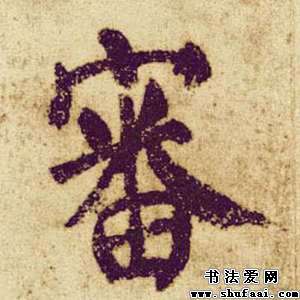 審
书法爱网
www.shufaai.com